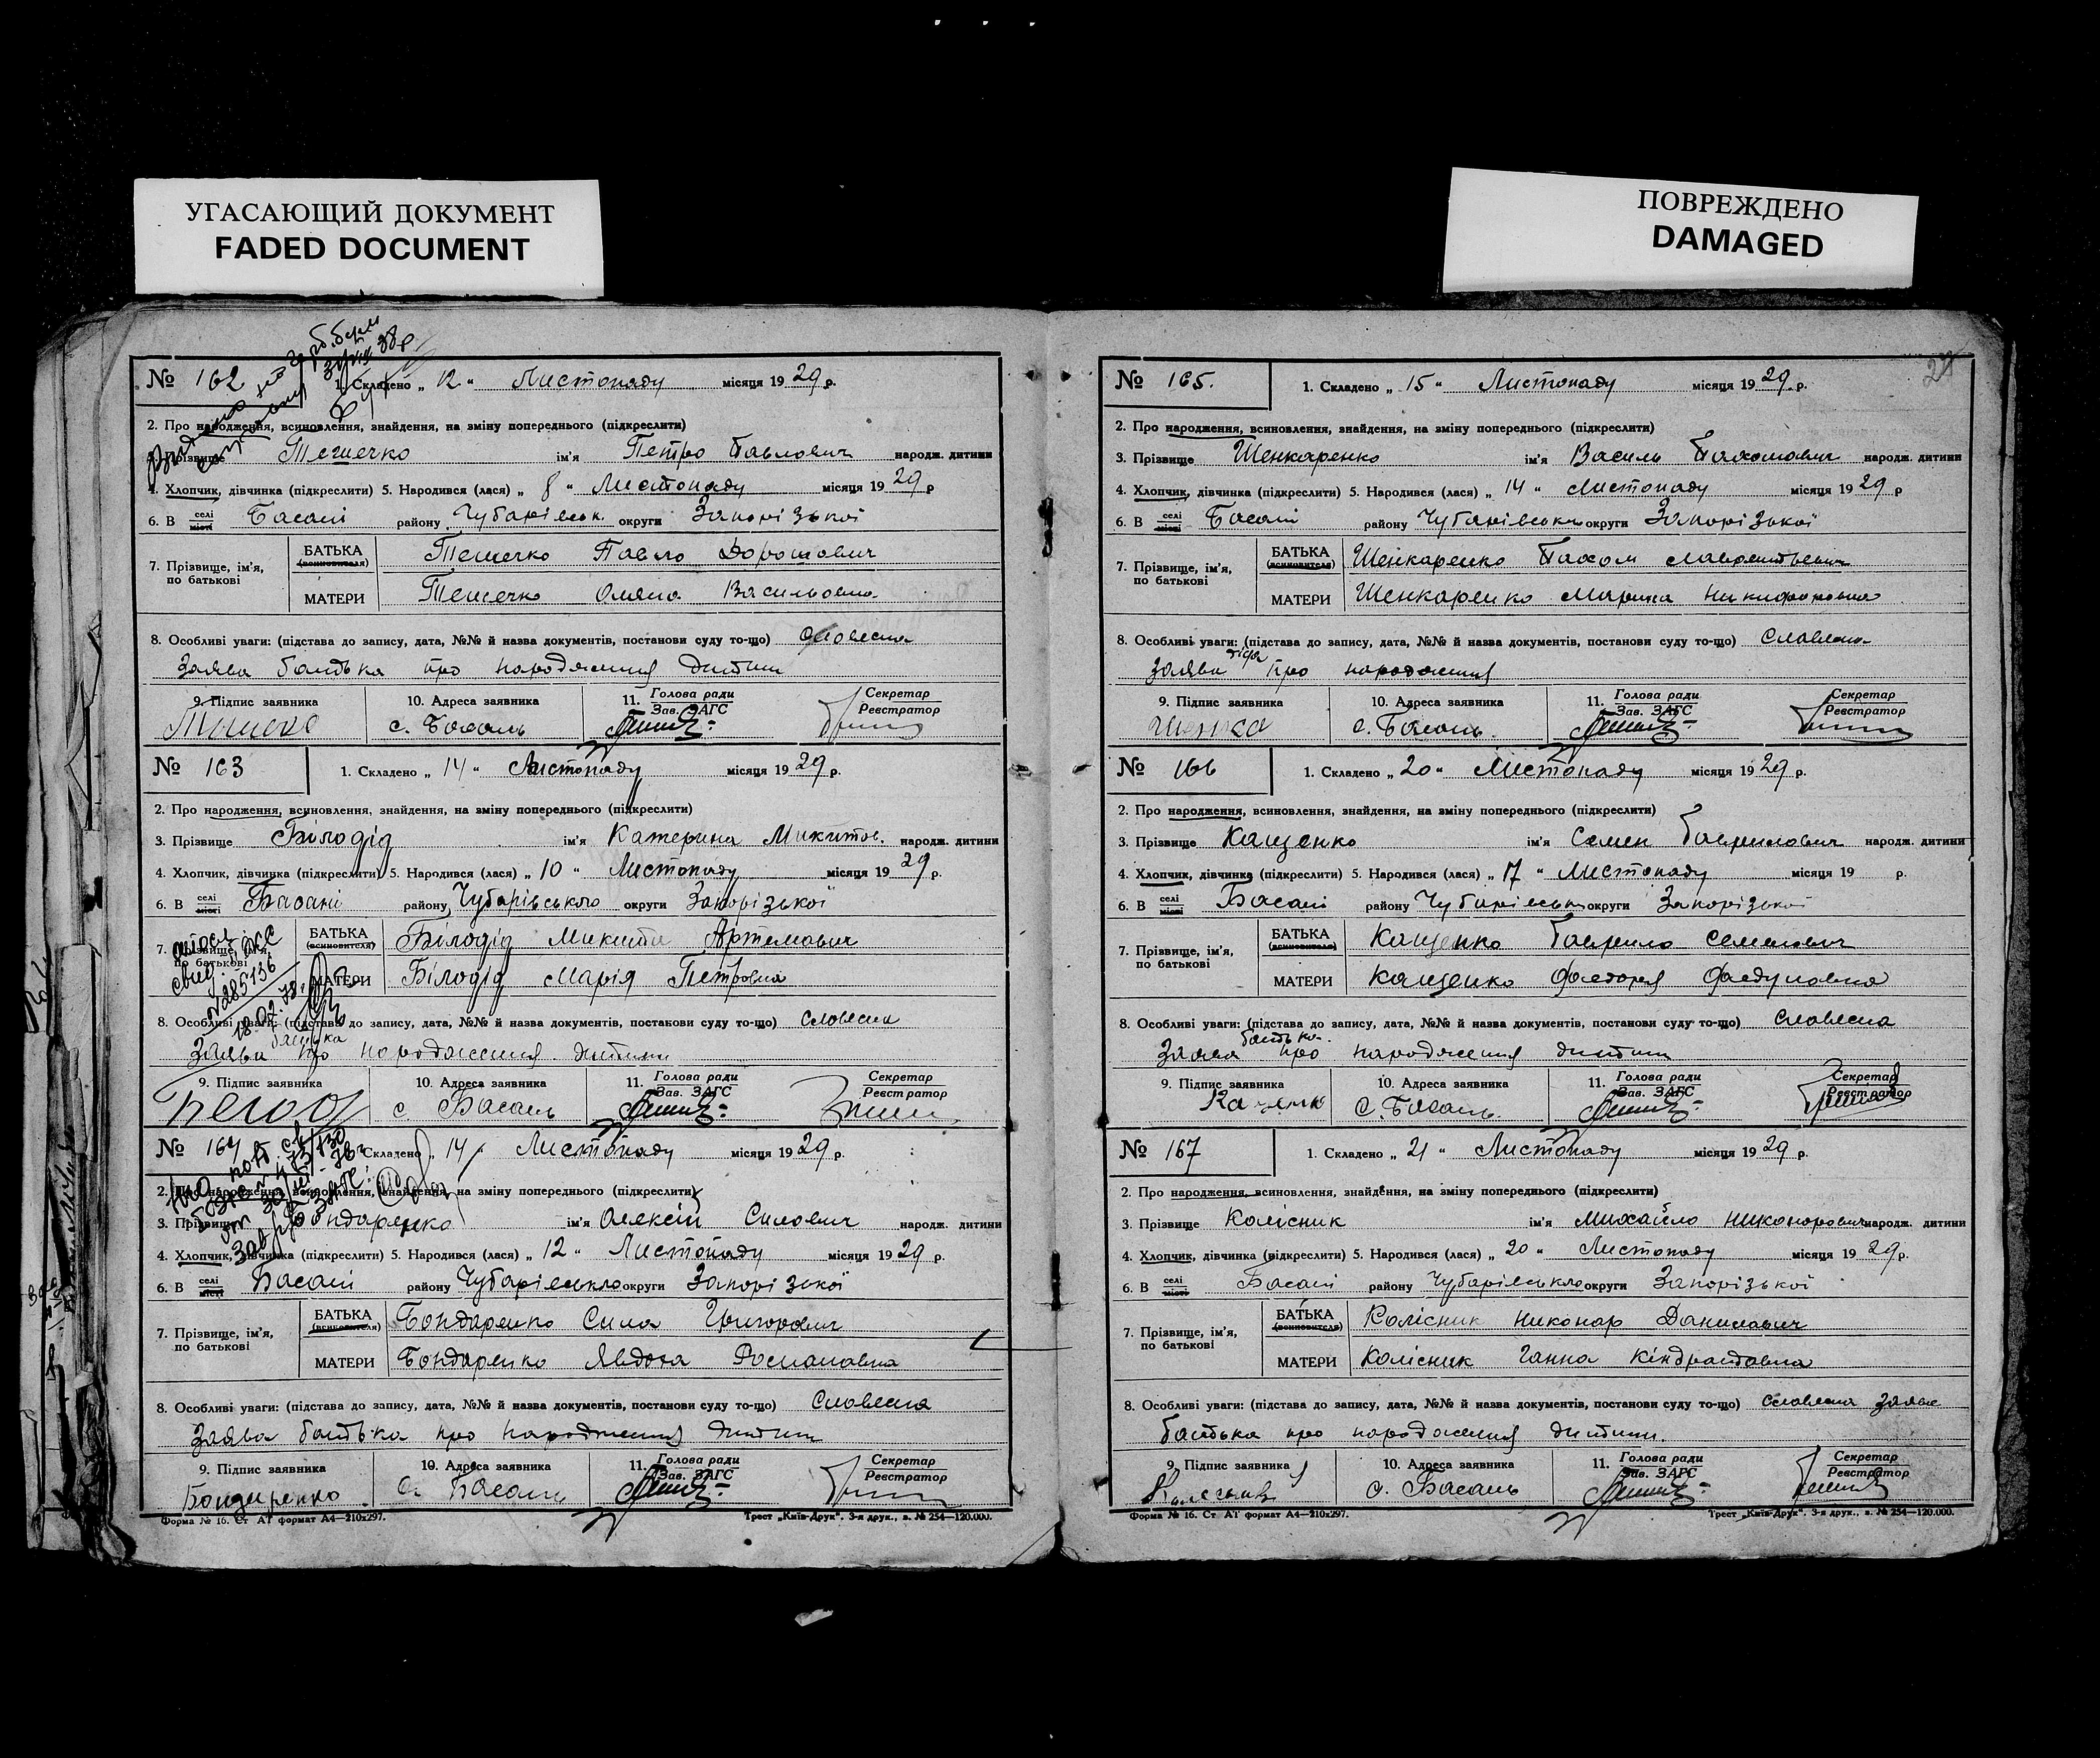 УГАСАЮЩИЙ ДОКУМЕНТ
FADED DOCUMENT
ПОВРЕЖДЕНО
DAMAGED
№ 162 1. Складено „ 12 “ Листопаду місяця 1929 р.
2. Про народження, всиновлення, знайдення, на зміну попереднього (підкреслити)
Прізвище Тешечко ім'я Петро Павлович народж. дитини
4. Хлопчик, дівчинка (підкреслити) 5. Народився (лася) „ 8 “ Листопаду місяця 1929 р
6. В селі місті Басані району Чубарівськ. округи Запорізької
7. Прізвище, ім'я, по батькові
БАТЬКА (всиновителя) Тешечко Павло Дорошович
МАТЕРИ Тешечко Оляна Васильовна
8. Особливі уваги: (підстава до запису, дата, №№ й назва документів, постанови суду то-що) словесна
Заява батька про народження дитини
9. Підпис заявника 10. Адреса заявника 11. Голова ради Зав. ЗАГС Секретар Реєстратор
с. Басань
№ 163 1. Складено „ 14 “ Листопаду місяця 1929 р.
2. Про народження, всиновлення, знайдення, на зміну попереднього (підкреслити)
3. Прізвище Білодід ім'я Катерина Микитов. народж. дитини
4. Хлопчик, дівчинка (підкреслити) 5. Народився (лася) „ 10 “ Листопаду місяця 1929 р.
6. В селі місті Басані району Чубарівського округи Запорізької
7. Прізвище, ім'я, по батькові
свид.
№285136
18.07.78
БАТЬКА (всиновителя) Білодід Микита Артемович
МАТЕРИ Білодід Марія Петровна
8. Особливі уваги: (підстава до запису, дата, №№ й назва документів, постанови суду то-що) словесна
батька
Заява про народження дитини
9. Підпис заявника 10. Адреса заявника 11. Голова ради Зав. ЗАГС Секретар Реєстратор
с. Басань
№ 164 Складено „ 14 Листопаду місяця 1929 р.
2. Про народження, всиновлення, знайдення, на зміну попереднього (підкреслити)
3. Прізвище Бондаренко ім'я Олексій Силович народж. дитини
4. Хлопчик, дівчинка (підкреслити) 5. Народився (лася) „ 12 “ Листопаду місяця 1929 р.
6. В селі місті Басані району Чубарівського округи Запорізької
7. Прізвище, ім'я, по батькові
БАТЬКА (всиновителя) Бондаренко Сила Григорович
МАТЕРИ Бондаренко Явдоха Романовна
8. Особливі уваги: (підстава до запису, дата, №№ й назва документів, постанови суду то-що) Словесна
Заява батька про народження дитини
9. Підпис заявника 10. Адреса заявника 11. Голова ради Зав. ЗАГС Секретар Реєстратор
Бондиренко с. Басань
Форма № 16. Ст АТ формат А4—210х297. Трест „Київ-Друк“. 3-я друк., з. № 254—120.000.
№ 165. 1. Складено „ 15 “ Листопаду місяця 1929 р.
2. Про народження, всиновлення, знайдення, на зміну попереднього (підкреслити)
3. Прізвище Шенкаренко ім'я Василь Пахомович народж. дитини
4. Хлопчик, дівчинка (підкреслити) 5. Народився (лася) „ 14 “ Листопаду місяця 1929 р
6. В селі місті Басані району Чубарівськ округи Запорізької
7. Прізвище, ім'я, по батькові
БАТЬКА (всиновителя) Шенкаренко Пахом Лаврентьевич
МАТЕРИ Шенкаренко Марина Никифоровна
8. Особливі уваги: (підстава до запису, дата, №№ й назва документів, постанови суду то-що) Словесна
Заява про народження
9. Підпис заявника 10. Адреса заявника 11. Голова ради Зав. ЗАГС Секретар Реєстратор
с. Басань.
№ 166 1. Складено „ 20 “ Листопаду місяця 1929 р.
2. Про народження, всиновлення, знайдення, на зміну попереднього (підкреслити)
3. Прізвище Кащенко ім'я Семен Гаврилович народж. дитини
4. Хлопчик, дівчинка (підкреслити) 5. Народився (лася) „ 17 “ Листопаду місяця 19 р.
6. В селі місті Басані району Чубарівськ округи Запорізької
7. Прізвище, ім'я, по батькові
БАТЬКА (всиновителя) Кащенко Гаврило Семенович
МАТЕРИ Кащенко Федоря Федуловна
8. Особливі уваги: (підстава до запису, дата, №№ й назва документів, постанови суду то-що) Словесна
батька
Заява про народження дитини
9. Підпис заявника 10. Адреса заявника 11. Голова ради Зав. ЗАГС Секретар Реєстратор
с. Басань.
№ 167 1. Складено „ 21 “ Листопаду місяця 1929 р.
2. Про народження, всиновлення, знайдення, на зміну попереднього (підкреслити)
3. Прізвище Колісник ім'я Михайло Никонорович народж. дитини
4. Хлопчик, дівчинка (підкреслити) 5. Народився (лася) „ 20 “ Листопаду місяця 1929 р.
6. В селі місті Басані району Чубарівського округи Запорізької
7. Прізвище, ім'я, по батькові
БАТЬКА (всиновителя) Колісник Никонар Данилович
МАТЕРИ Колісник Ганна Кіндратовна
8. Особливі уваги: (підстава до запису, дата, №№ й назва документів, постанови суду то-що) Словесна заява
батька про народження дитини.
9. Підпис заявника 10. Адреса заявника 11. Голова ради Зав. ЗАГС Секретар Реєстратор
с. Басань
Форма № 16. Ст АТ формат А4—210х297. Трест „Київ-Друк“. 3-я друк., з. № 254—120.000.